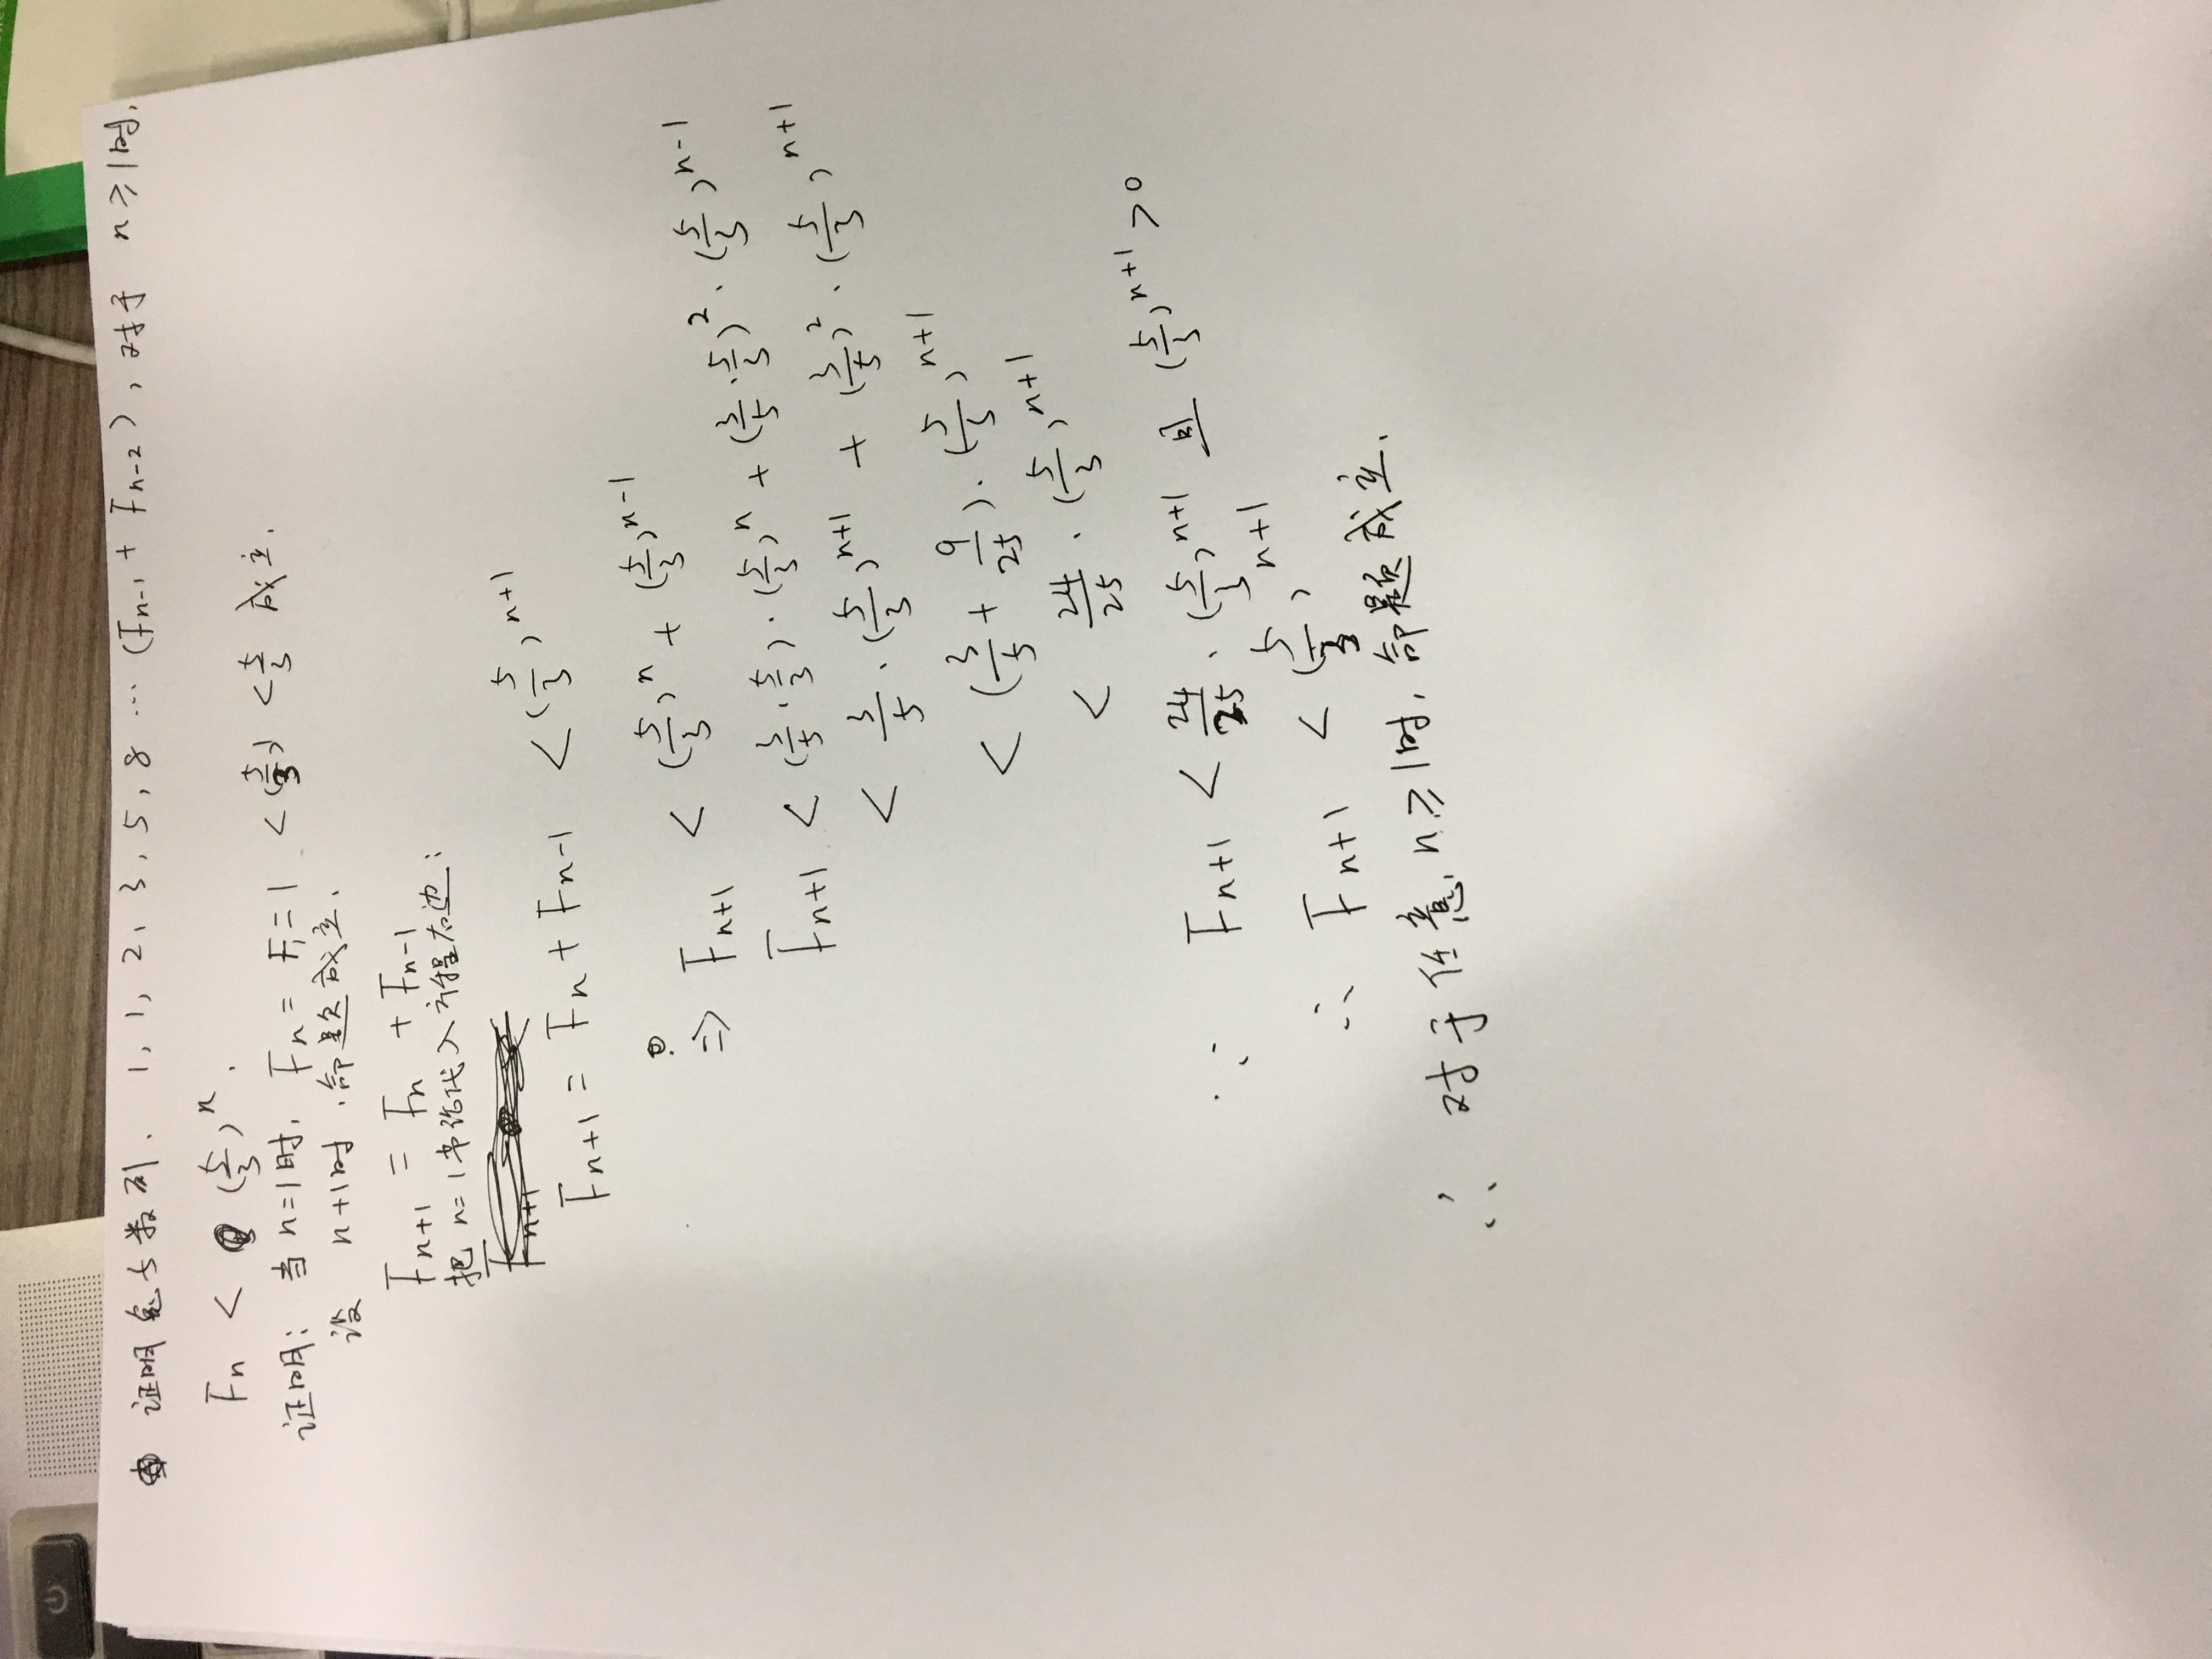 证明兔子数列. 1, 1, 2, 3, 5, 8 … (Fn-1 + Fn-2), 对于 n ≥ 1时,
Fn < (5/3)^n.
证明: 当 n=1时, Fn = F1 = 1 < (5/3) < 5/3 成立.
设 n+1时, 命题成立.
Fn+1 = Fn + Fn-1
把 n=1 代入方程右边:
Fn+1
Fn+1 = Fn + Fn-1 < (5/3)^n+1
=> Fn+1 < (5/3)^n + (5/3)^n-1
Fn+1 < (3/5 · 5/3) · (5/3)^n + (3/5 · 5/3)^2 · (5/3)^n-1
< 3/5 · (5/3)^n+1 + (3/5)^2 · (5/3)^n+1
< (3/5 + 9/25) · (5/3)^n+1
< 24/25 · (5/3)^n+1
∵ Fn+1 < 24/25 · (5/3)^n+1 且 (5/3)^n+1 > 0
∴ Fn+1 < (5/3)^n+1
∴ 对于任意 n ≥ 1时, 命题成立.